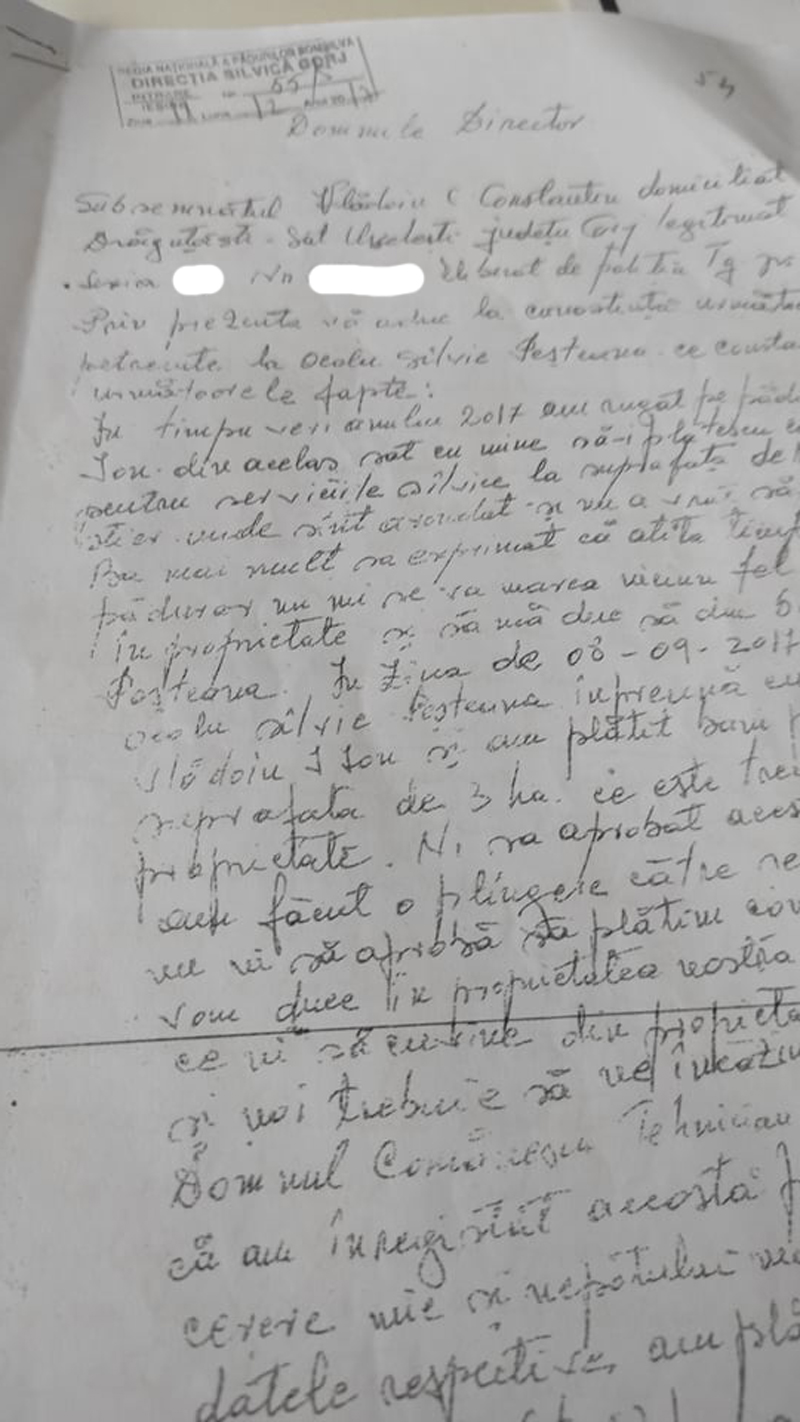 REGIA NAȚIONALĂ A PĂDURILOR ROMSILVA
DIRECȚIA SILVICĂ GORJ
INTRARE
IEȘIRE
Domnule Director
Subsemnatul Vlădoiu C Constantin domiciliat
Drăguțești - Sat Urechești județu Gorj legitimat
Seria Nr Eliberat de poliția Tg
Prin prezenta vă aduc la conoștiență următo
petrecute la Ocolu silvic Peșteana ce consta
următoarele fapte:
În timpu veri anului 2017 am rugat pe pădu
Ion din acelas sat cu mine să-i plătescu
pentru serviciile silvice la suprafața de
unde sînt arondat și nu a vrut să
Ba mai mult sa exprimat că atîta timp
pădurar nu mi se va marca niciun fel
în proprietate și să mă duc să dau
Peșteana. În Ziua de 08-09-2017
ocolu silvic Peșteana înpreună cu
Vlădoiu I Ion și am plătit
suprafata de 3 ha. ce este
proprietate. Ni sa aprobat aces
am făcut o plîngere către
nu ni să aprobă să plătim
vom duce în proprietatea nostră
ce ni să cuvine din propieta
și noi trebuie să ne încăzim
Domnul Comănescu Tehnician
că am înregistrat aceastа
cerere mie și nepotului
datele respective, am plă